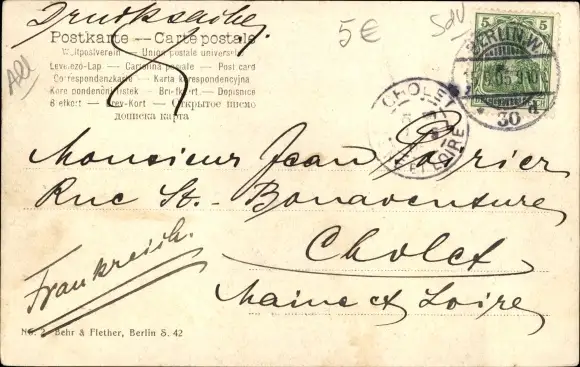 Drucksache.
5€
SdV
All
Postkarte — Carte postale
Weltpostverein — Union postale universelle
Levelező-Lap — Cartolina postale — Post card
Correspondenzkarte — Karta korespondencyjna
Korespondenční lístek — Briefkart — Dopisnice
Brefkort — Brev-Kort — Открытое письмо
дописна карта
5 5
DEUTSCHES REICH
BERLIN W.
9.05
30 d
CHOLET
ET LOIRE
Monsieur Jean Poirier
Rue St. Bonaventure
Cholet
Maine et Loire
Frankreich.
No. 2 Behr & Flether, Berlin S. 42